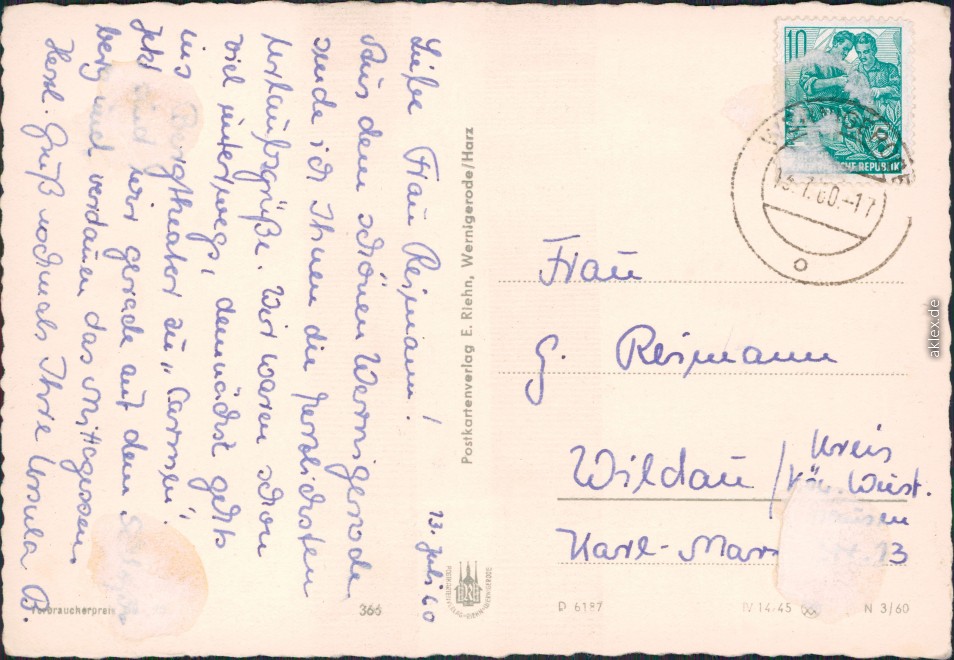 13. Juli 60
Liebe Frau Reimann!
Aus dem schönen Wernigerode
sende ich Ihnen die herzlichsten
Urlaubsgrüße. Wir waren schon
viel unterwegs, demnächst gehts
ins Bergtheater zu „Carmen".
Jetzt sind wir gerade auf dem
berg und verdauen das Mittagessen.
Herzl. Gruß nochmals Ihre Ursula B.
Verbraucherpreis
366
Postkartenverlag E. Riehn, Wernigerode/Harz
10
13.7.60.-17
Frau
G. Reimann
Wildau / Kreis
Kön. Wust.
hausen
Karl-Marx 13
D 6187
IV 14-45
N 3/60
aklex.de